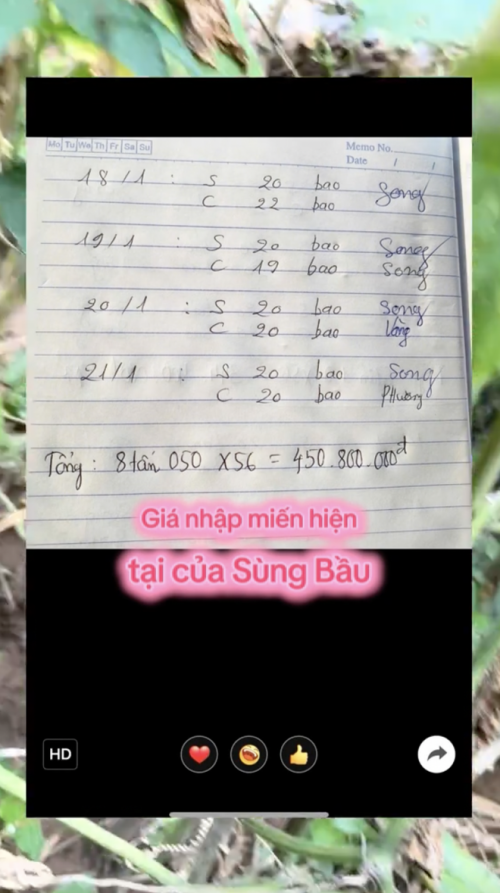 Mo Tu We Th Fr Sa Su
Memo No.
Date / /
18/1 : S 20 bao Song
C 22 bao
19/1 : S 20 bao Song
C 19 bao Song
20/1 : S 20 bao Song
C 20 bao Vàng
21/1 : S 20 bao Song
C 20 bao Phương
Tổng: 8 tấn 050 x56 = 450.800.000đ
Giá nhập miến hiện
tại của Sùng Bầu
HD